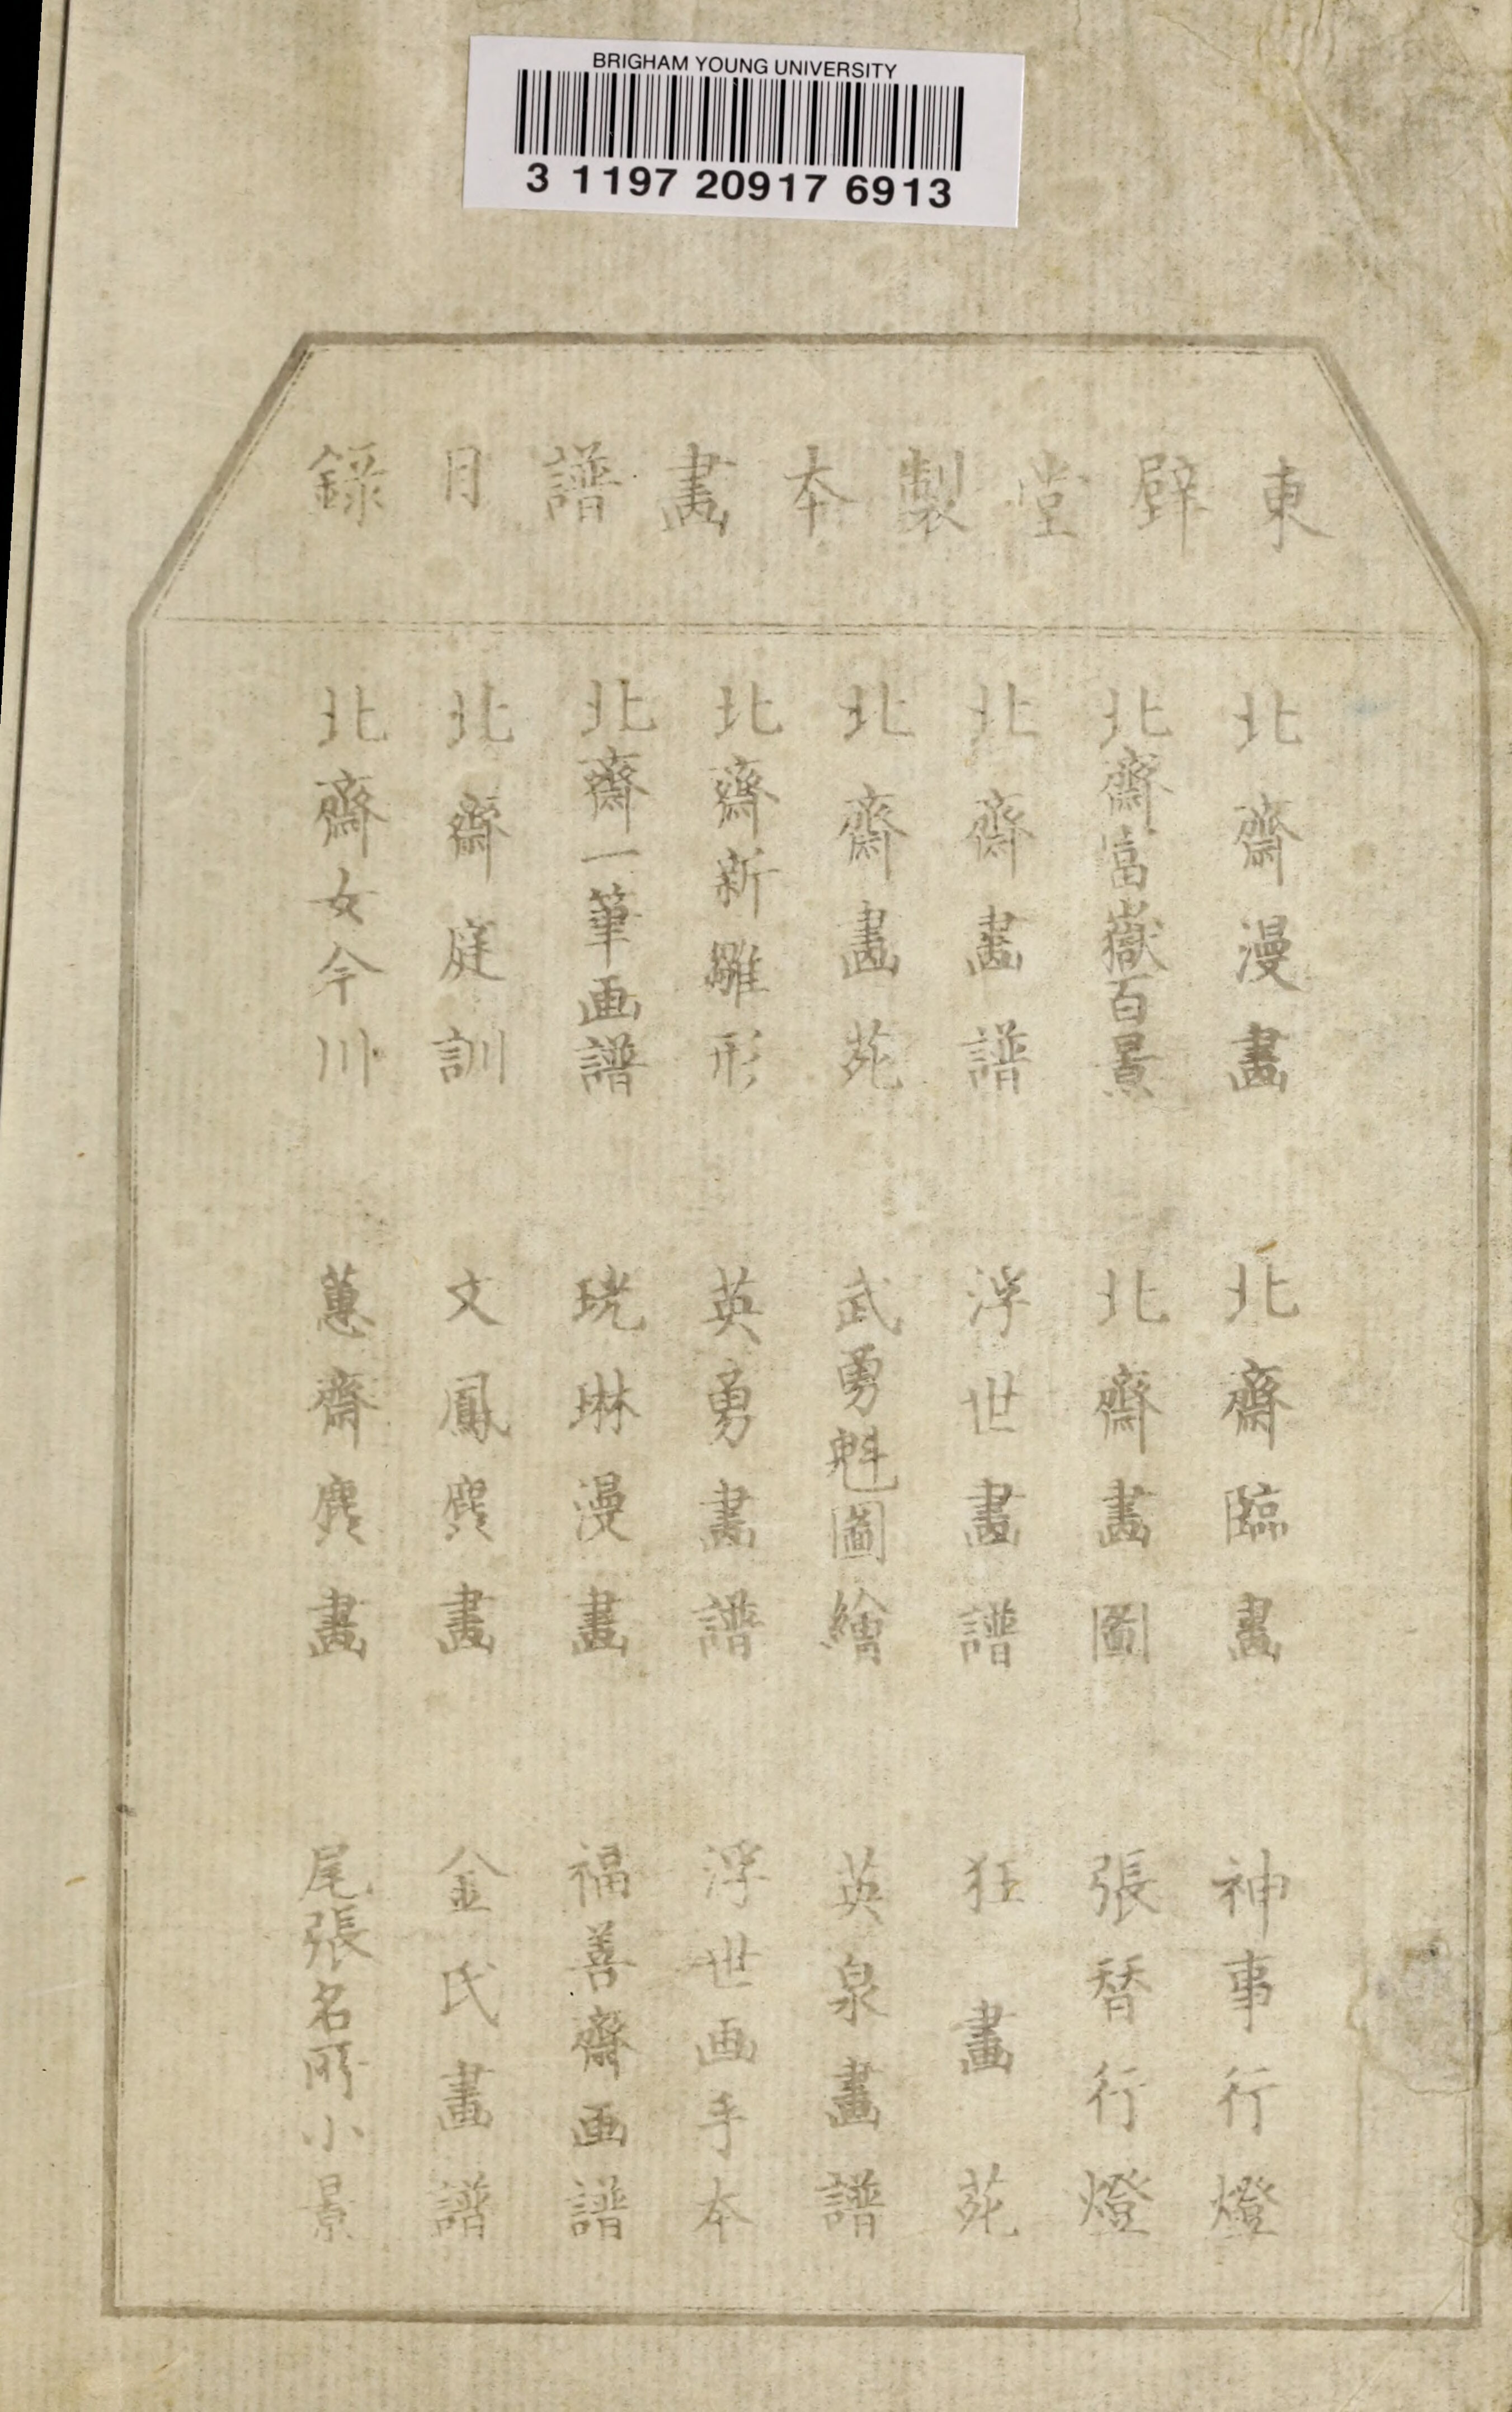 BRIGHAM YOUNG UNIVERSITY
3 1197 20917 6913
東壁堂製本畫譜目録
北齋漫畫
北齋富嶽百景
北齋畫譜
北齋畫苑
北齋新雛形
北齋一筆画譜
北齋庭訓
北齋女今川
北齋臨畫
北齋畫圖
浮世畫譜
武勇魁圖繪
英勇畫譜
珖琳漫畫
文鳳麁畫
蕙齋麁畫
神事行燈
張替行燈
狂畫苑
英泉畫譜
浮世画手本
福善齋画譜
金氏畫譜
尾張名所小景